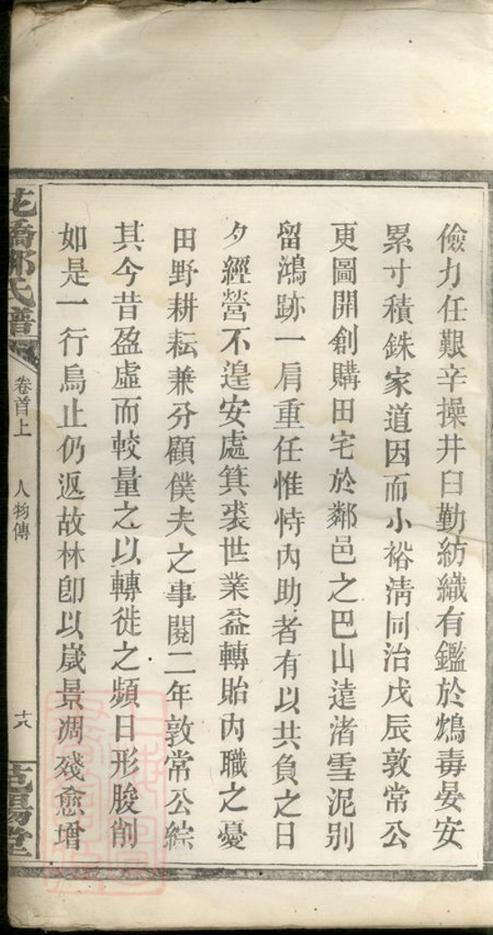 儉力任艱辛操井臼勤紡織有鑑於鴆毒晏安
累寸積銖家道因而小裕淸同治戊辰敦常公
更圖開創購田宅於鄰邑之巴山遠渚雪泥別
留鴻跡一肩重任惟恃內助者有以共負之日
夕經營不遑安處箕裘世業益轉貽內職之憂
田野耕耘兼分顧僕夫之事閱二年敦常公綜
其今昔盈虛而較量之以轉徙之頻日形朘削
如是一行鳥止仍返故林卽以歲景凋殘愈增
花橋鄭氏譜
卷首上
人物傳
十八